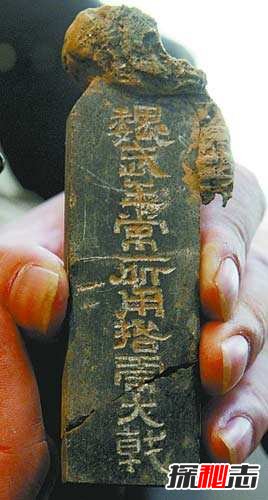 魏武王常所用挌虎大戟
探秘志